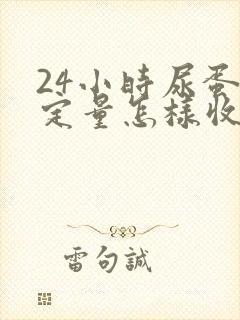 24小時尿蛋
定量怎樣收
雷句誠